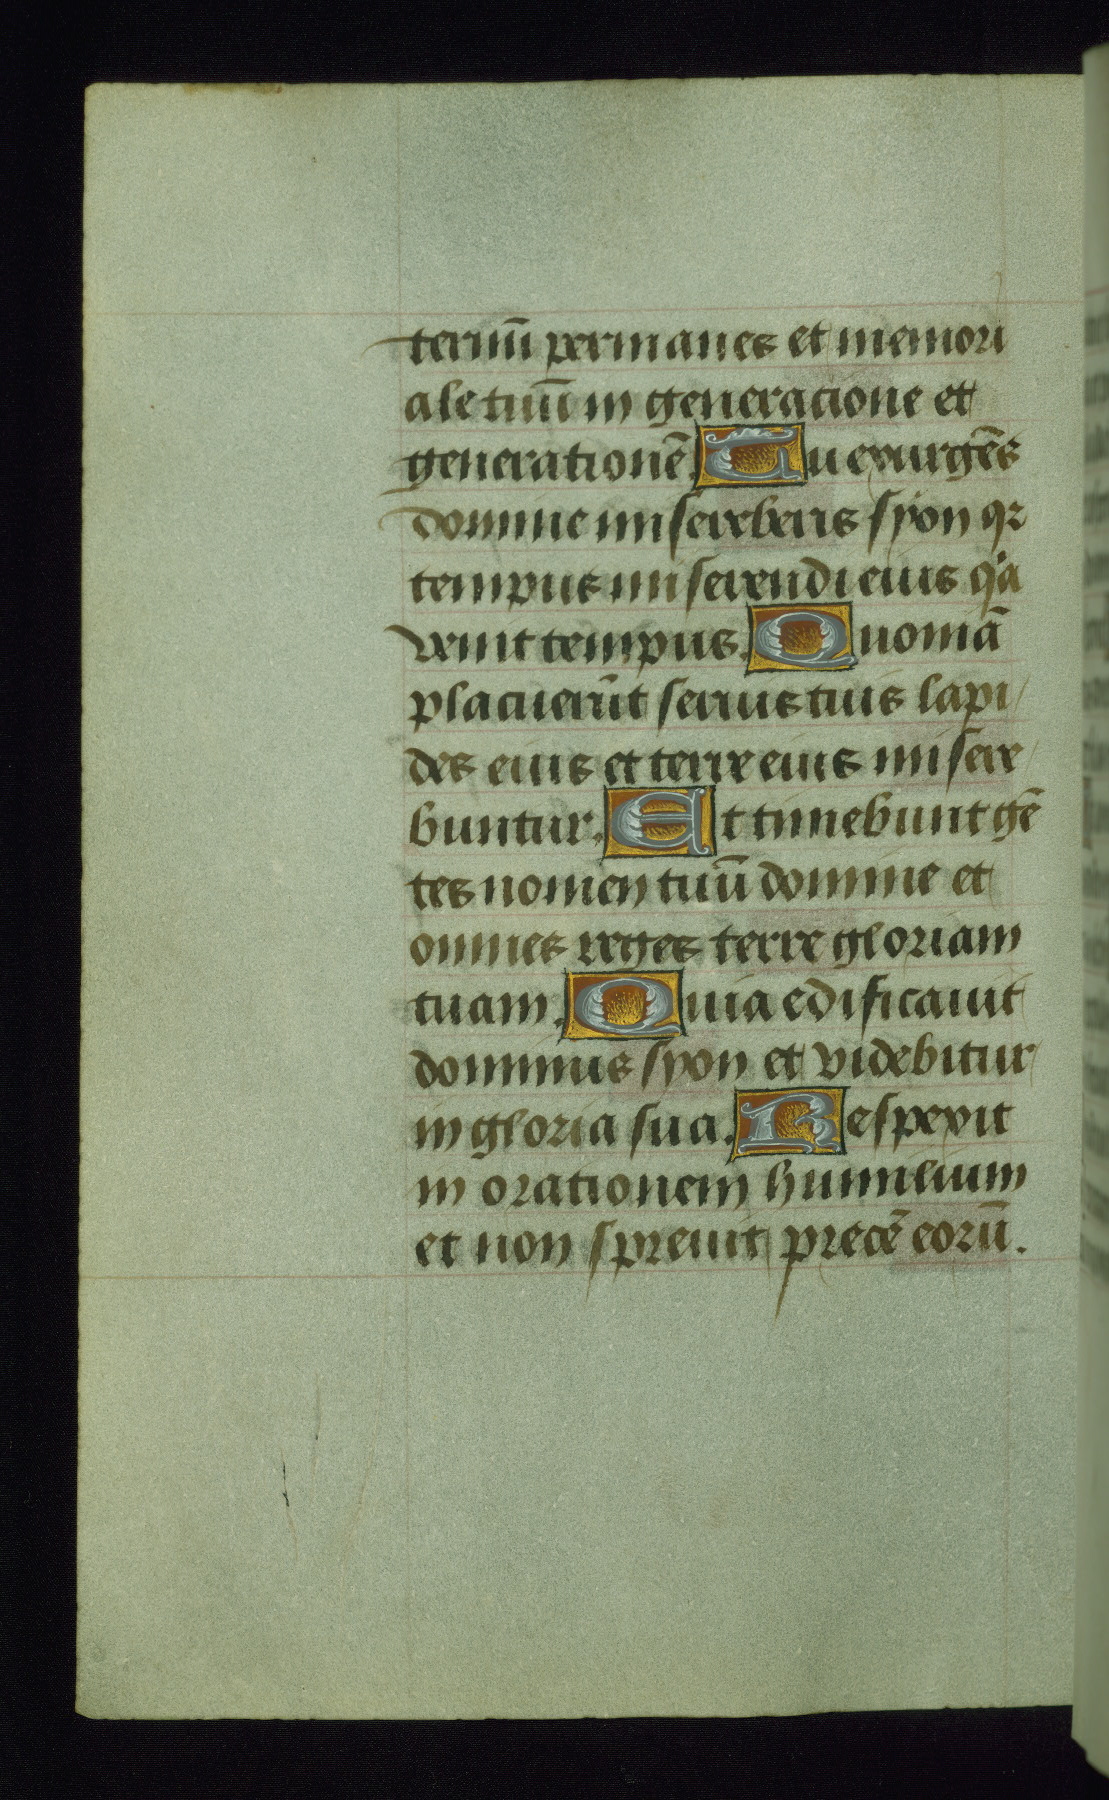 ternũ permanes et memori
ale tuũ in generacione et
generationẽ. Tu exurgẽs
domine misereberis syon qr
tempus miserendi eius q'a
venit tempus. Quoniã
placuerũt seruis tuis lapi
des eius et terre eius misere
buntur. Et timebunt gẽ
tes nomen tuũ domine et
omnes reges terre gloriam
tuam. Quia edificauit
dominus syon et videbitur
in gloria sua. Respexit
in orationem humilium
et non spreuit precẽ eorũ.